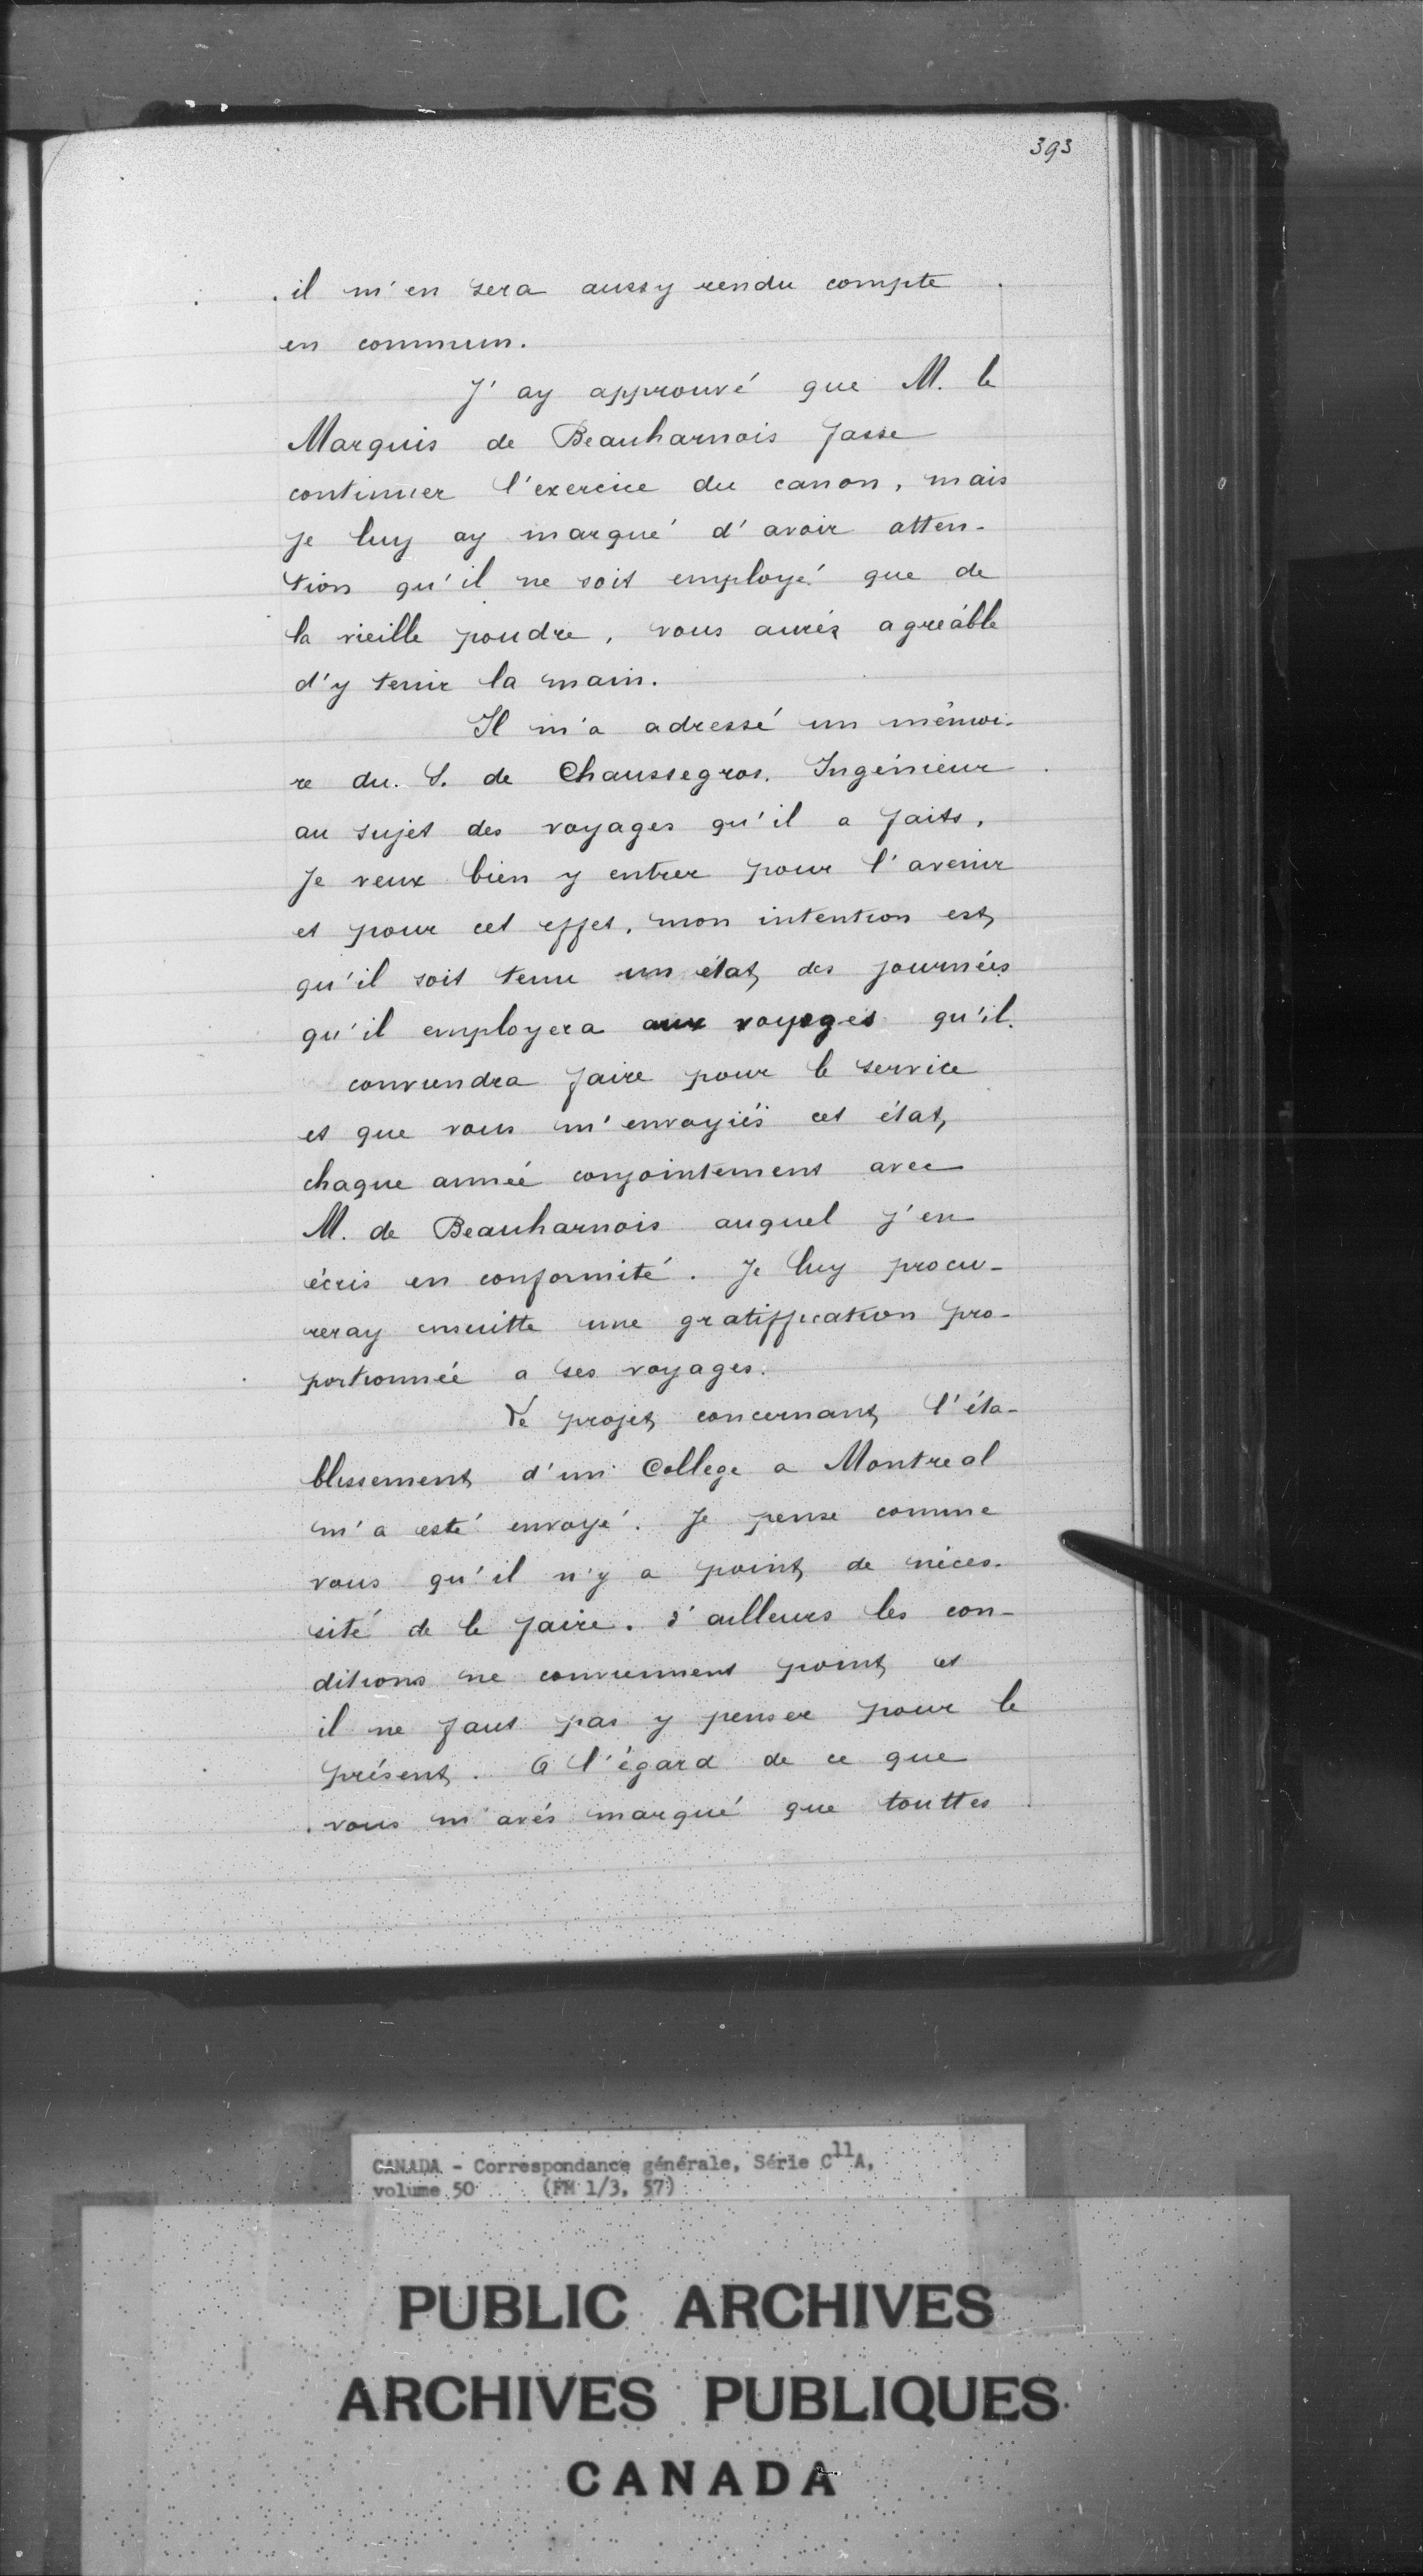 393
il m'en sera aussy rendu compte
en commun.
J'ay approuvé que M. le
Marquis de Beauharnois fasse
continuer l'exercice du canon, mais
je luy ay marqué d'avoir atten-
tion qu'il ne soit employé que de
la vieille poudre, vous aurés agréable
d'y tenir la main.
Il m'a adressé un mémoi-
re du S. de Chaussegros, Ingénieur
au sujet des voyages qu'il a faits,
Je veux bien y entrer pour l'avenir
et pour cet effet, mon intention est
qu'il soit tenu un état des journées
qu'il employera aux voyages qu'il
conviendra faire pour le service
et que vous m'envoyiés cet état
chaque année conjointement avec
M. de Beauharnois auquel j'en
écris en conformité. Je luy procu-
reray ensuitte une gratiffication pro-
portionnée a ses voyages.
Le projet concernant l'éta-
blissement d'un College a Montreal
m'a esté envoyé. Je pense comme
vous qu'il n'y a point de néces-
sité de le faire. d'ailleurs les con-
ditions ne conviennent point et
il ne faut pas y penser pour le
présent. A l'égard de ce que
vous m'avés marqué que touttes
CANADA - Correspondance générale, Série C11A,
volume 50 (FM 1/3, 57)
PUBLIC ARCHIVES
ARCHIVES PUBLIQUES
CANADA